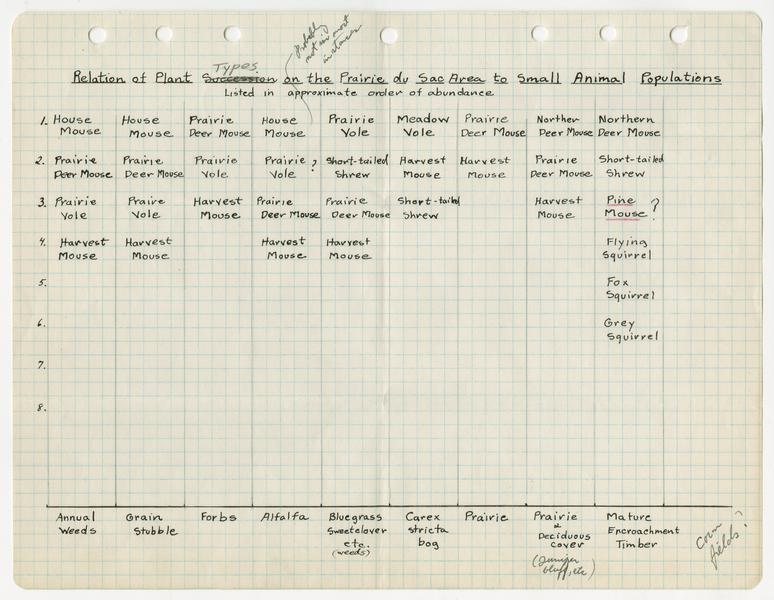 Probably
not in most
instances
Types
Relation of Plant Succession on the Prairie du Sac Area to Small Animal Populations
Listed in approximate order of abundance
1. House Mouse House Mouse Prairie Deer Mouse House Mouse Prairie Vole Meadow Vole Prairie Deer Mouse Norther Deer Mouse Northern Deer Mouse
2. Prairie Deer Mouse Prairie Deer Mouse Prairie Vole Prairie Vole ? Short-tailed Shrew Harvest Mouse Harvest Mouse Prairie Deer Mouse Short-tailed Shrew
3. Prairie Vole Praire Vole Harvest Mouse Prairie Deer Mouse Prairie Deer Mouse Short-tailed Shrew Harvest Mouse Pine Mouse ?
4. Harvest Mouse Harvest Mouse Harvest Mouse Harvest Mouse Flying Squirrel
5. Fox Squirrel
6. Grey Squirrel
7.
8.
Annual Weeds Grain Stubble Forbs Alfalfa Bluegrass Sweetclover etc. (weeds) Carex stricta bog Prairie Prairie & Deciduous cover (Juniper bluff, etc) Mature Encroachment Timber
Corn fields?